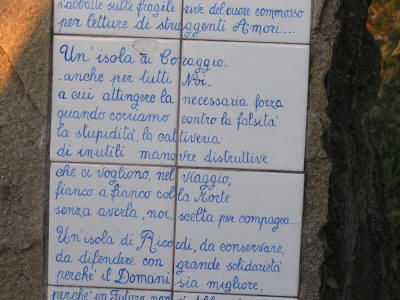 s'abbatte sulle fragili rive del cuore commosso
per letture di struggenti Amori...
Un'isola di Coraggio
anche per tutti Noi
a cui attingere la necessaria forza
quando corriamo contro la falsità
la stupidità, la cattiveria
di inutili manovre distruttive
che ci vogliono, nel viaggio,
fianco a fianco colla Morte
senza averla, noi, scelta per compagna...
Un'isola di Ricordi, da conservare,
da difendere con grande solidarietà
perchè il Domani sia migliore,
perchè in Futuro non